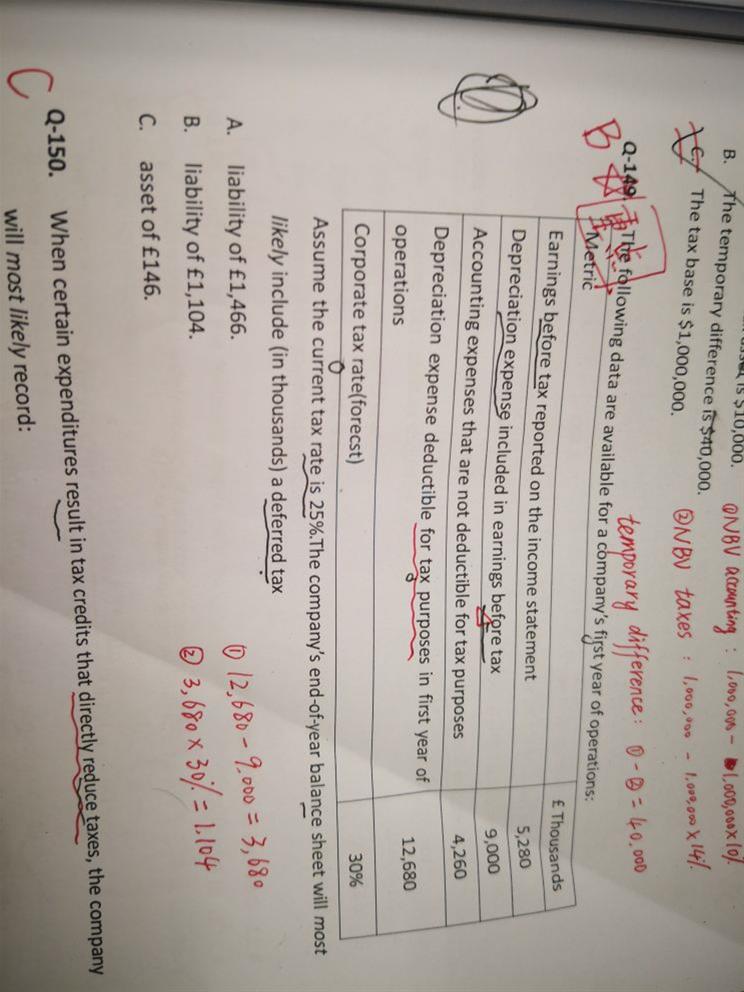 is $10,000.
B. The temporary difference is $40,000.
C. The tax base is $1,000,000.
①NBV accounting : 1,000,000 - 1,000,000×10%
②NBV taxes : 1,000,000 - 1,000,000×14%.
temporary difference: ①-②=40,000
B
Q-149. The following data are available for a company's first year of operations:
Metric £ Thousands
Earnings before tax reported on the income statement 5,280
Depreciation expense included in earnings before tax 9,000
Accounting expenses that are not deductible for tax purposes 4,260
Depreciation expense deductible for tax purposes in first year of
operations 12,680
Corporate tax rate(forecst) 30%
Assume the current tax rate is 25%.The company's end-of-year balance sheet will most
likely include (in thousands) a deferred tax
A. liability of £1,466.
B. liability of £1,104.
C. asset of £146.
① 12,680-9,000=3,680
② 3,680×30%=1,104
C
Q-150. When certain expenditures result in tax credits that directly reduce taxes, the company
will most likely record: